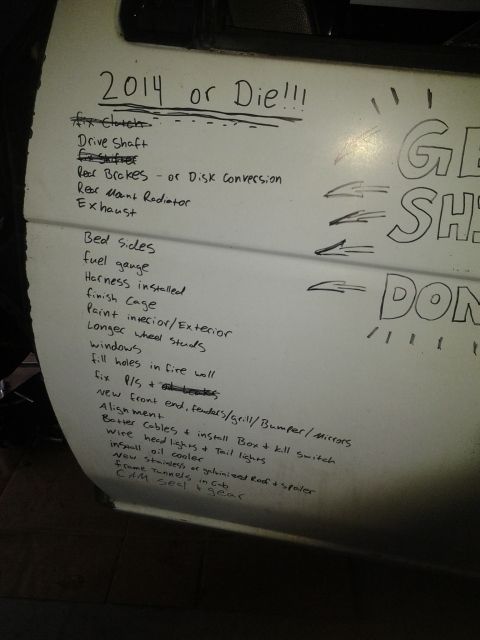 2014 or Die!!!
fix Clutch
Drive shaft
fix shifter
Rear Brakes - or Disk Conversion
Rear Mount Radiator
Exhaust
Bed sides
fuel gauge
Harness installed
finish cage
Paint interior/Exterior
Longer wheel studs
windows
fill holes in fire wall
fix P/S + oil leaks
New front end, fenders/grill/Bumper/Mirrors
Alignment
Batter Cables + install Box + kill switch
Wire head lights + Tail lights
install oil cooler
New stainless or galvinized Roof + spoiler
frame Tunnels in Cab
CAM seal + gear
GE
SHI
DON